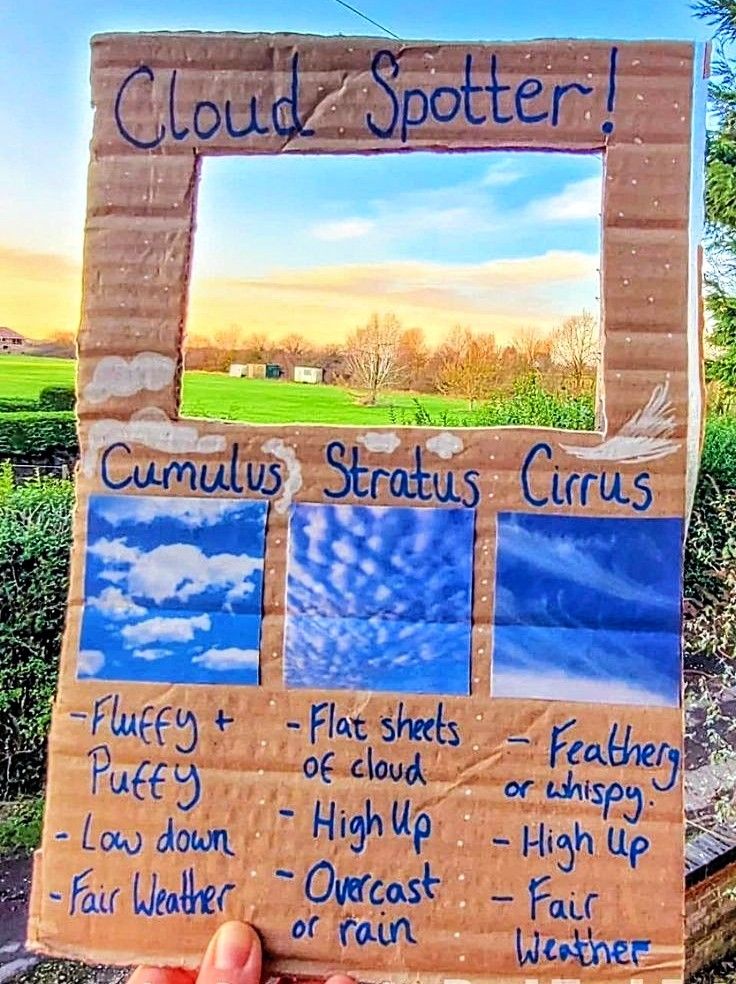 Cloud Spotter!
Cumulus
Stratus
Cirrus
- Fluffy +
Puffy
- Low down
- Fair Weather
- Flat sheets
of cloud
- High Up
- Overcast
or rain
- Feathery
or whispy.
- High Up
- Fair
Weather